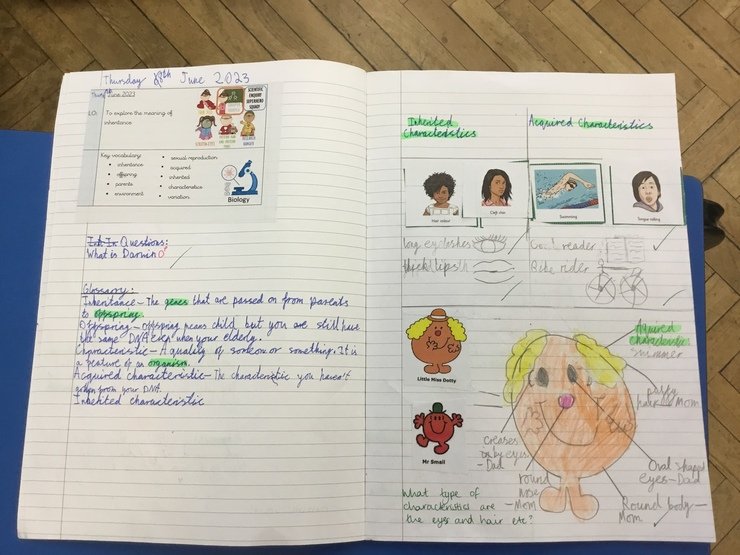 Thursday 8th June 2023
June 2023
LO: To explore the meaning of
inheritance
SCIENTIFIC
ENQUIRY
SUPERHERO
SQUAD
Key vocabulary:
inheritance
offspring
parents
environment
sexual reproduction
acquired
inherited
characteristics
variation
Biology
Questions:
What is Darwin
Glossary:
Inheritance - The genes that are passed on from parents
to offspring.
Offspring - offspring means child, but you are still have
the same DNA even when your elderly.
Characteristic - A quality of someone or something. It is
a feature of an organism.
Acquired characteristic - The characteristic you haven't
from your DNA.
Inherited characteristic
Inherited
Characteristics
Acquired Characteristics
Hair colour
Cleft chin
Swimming
Tongue rolling
long eyelashes
thick lips
Good reader
Bike rider
Little Miss Dotty
Mr Small
Aquired
characteristic
swimmer
puffy
hair - Mom
creases
by eyes
- Dad
Oval shaped
eyes - Dad
round
nose
- Mom
Round body -
Mom
What type of
characteristics are
the eyes and hair etc?